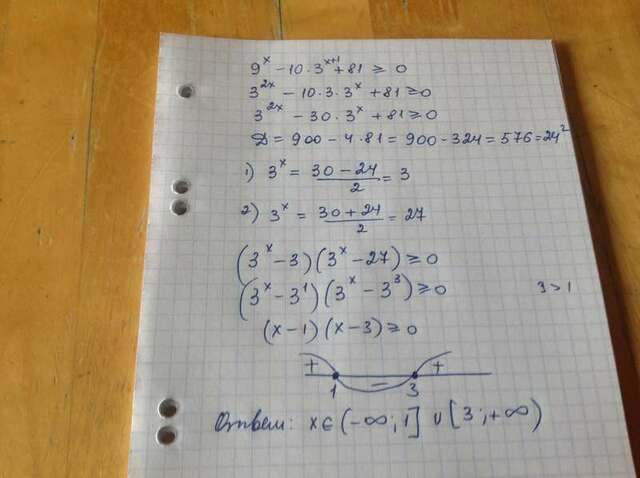 9^x − 10·3^{x+1} + 81 ⩾ 0
3^{2x} − 10·3·3^x + 81 ⩾ 0
3^{2x} − 30·3^x + 81 ⩾ 0
Д = 900 − 4·81 = 900 − 324 = 576 = 24²
1) 3^x = (30 − 24)/2 = 3
2) 3^x = (30 + 24)/2 = 27
(3^x − 3)(3^x − 27) ⩾ 0
(3^x − 3^1)(3^x − 3^3) ⩾ 0 3 > 1
(x − 1)(x − 3) ⩾ 0
+ − +
1 3
Ответ: x ∈ (−∞; 1] ∪ [3; +∞)